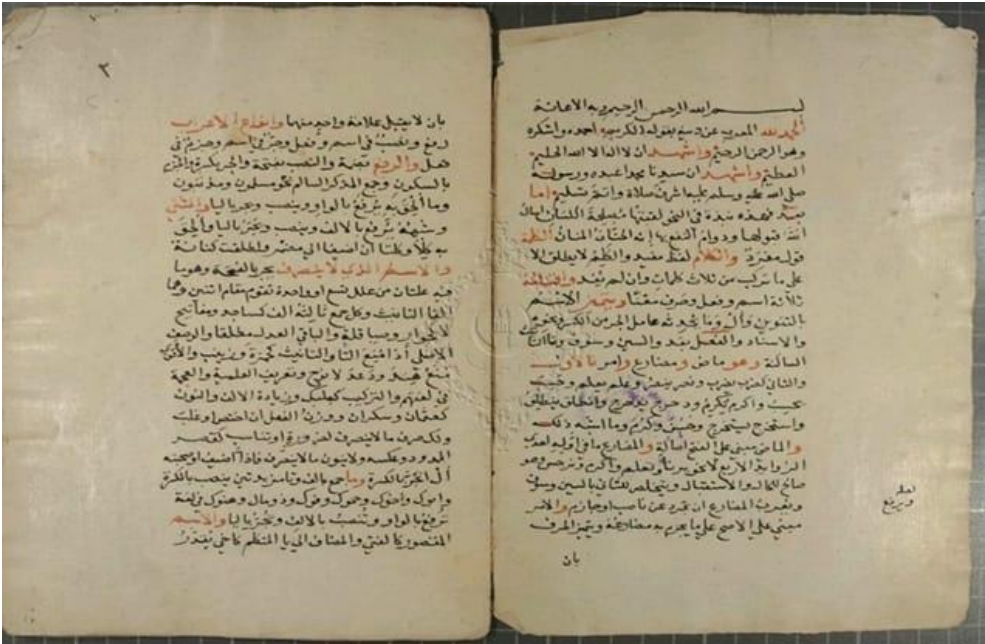 بسم الله الرحمن الرحيم وبه الاعانة
الحمد لله المعرب عن بقوله الكريم احمده واشكره
وهو الرحمن الرحيم واشهد ان لا اله الا الله الحليم
العظيم واشهد ان سيدنا محمدا عبده ورسوله
صلى الله عليه وسلم عليه اشرف صلاة واتم تسليم اما
بعد فهذه نبذة في النحو لمصلحة اللسان اسال
الله قبولها ودوام النفع بها إنه الحنان المنان الكلمة
قول مفرد والكلام لفظ مفيد والكلم لا يطلق الا
على ما تركب من ثلاث كلمات وان لم يفد واقسام الكلمة
ثلاثة اسم وفعل وحرف ويتميز الاسم
بالتنوين وأل وما يحدثه عامل الجر من الكسر
والاسناد والفعل بقد والسين وسوف وتاء التأنيث
الساكنة وهو ماض ومضارع وامر
والثاني كضرب يضرب ونصر ينصر وعلم يعلم وحسب
يحسب واكرم يكرم ودحرج يدحرج وانطلق ينطلق
واستخرج يستخرج وما اشبه ذلك
والماضي مبني على الفتح اصالة والمضارع ما في اوله احدى
الزوايد الاربع
صالح للحال والاستقبال ويتخلص للثاني بالسين وسوف
ويعرب المضارع ان تجرد عن ناصب او جازم والامر
مبني على الاصح على ما يجزم به مضارعه ويتميز الحرف
بان
٢
بان لا يقبل علامة واحد منهما وانواع الاعراب
رفع ونصب في اسم وفعل وجر في اسم وجزم في
فعل والرفع بضمة والنصب بفتحة والجر بكسرة والجزم
بالسكون وجمع المذكر السالم نحو مسلمون ومذنبون
وما ألحق به يرفع بالواو وينصب ويجر باليا والمثنى
وشبهه يرفع بالالف وينصب ويجر باليا وألحق
به كلا وكلتا ان اضيفا الى مضمر
والاسم الذي لا ينصرف يجر بالفتحة وهو ما
فيه علتان من علل تسع او واحدة تقوم مقام اثنين وهما
الفا التانيث وكل جمع ثالثه الف كساجد ومفاتيح
لا نحو والباقي العدل مطلقا والوصف
الاصلي اذا منع التا والتانيث كحمزة وزينب
منع هند ودعد لا نوح وتعريف العلمية والعجمة
والتركيب كبعلبك وزيادة الالف والنون
كعثمان وسكران ووزن الفعل ان اختص او غلب
ولك صرف ما لا ينصرف لضرورة او تناسب كقصر
الممدود وعكسه ولا ينون ما لا ينصرف فاذا اضيف او صحبته
أل الجر بالكسرة وما جمع بالف وتا مزيدتين ينصب بالكسرة
وابوك واخوك وحموك وفوك وذو مال وهنوك في لغة
ترفع بالواو وتنصب بالالف وتجر باليا والاسم
المقصور كالفتى والمضاف الى يا المتكلم